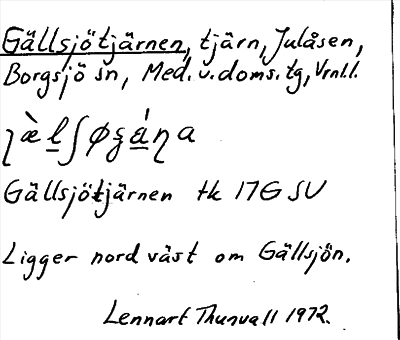 Gällsjötjärnen, tjärn, Julåsen,
Borgsjö sn, Med. v. doms. tg, Vrnl.l.
Gällsjötjärnen tk 17G SV
Ligger nord väst om Gällsjön.
Lennart Thunvall 1972.